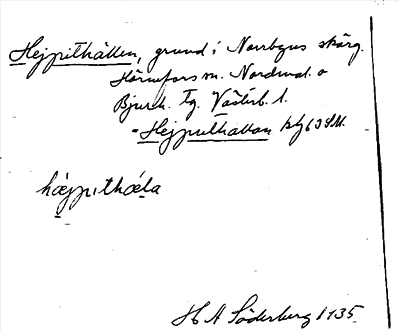 Hejpithällen, grund i Norrbyns skärg.
Hörnefors sn. Nordmal. o
Bjurh. tg. Västerb. l.
Hejpithällan
hæjpıthæla
H A Söderberg 1935